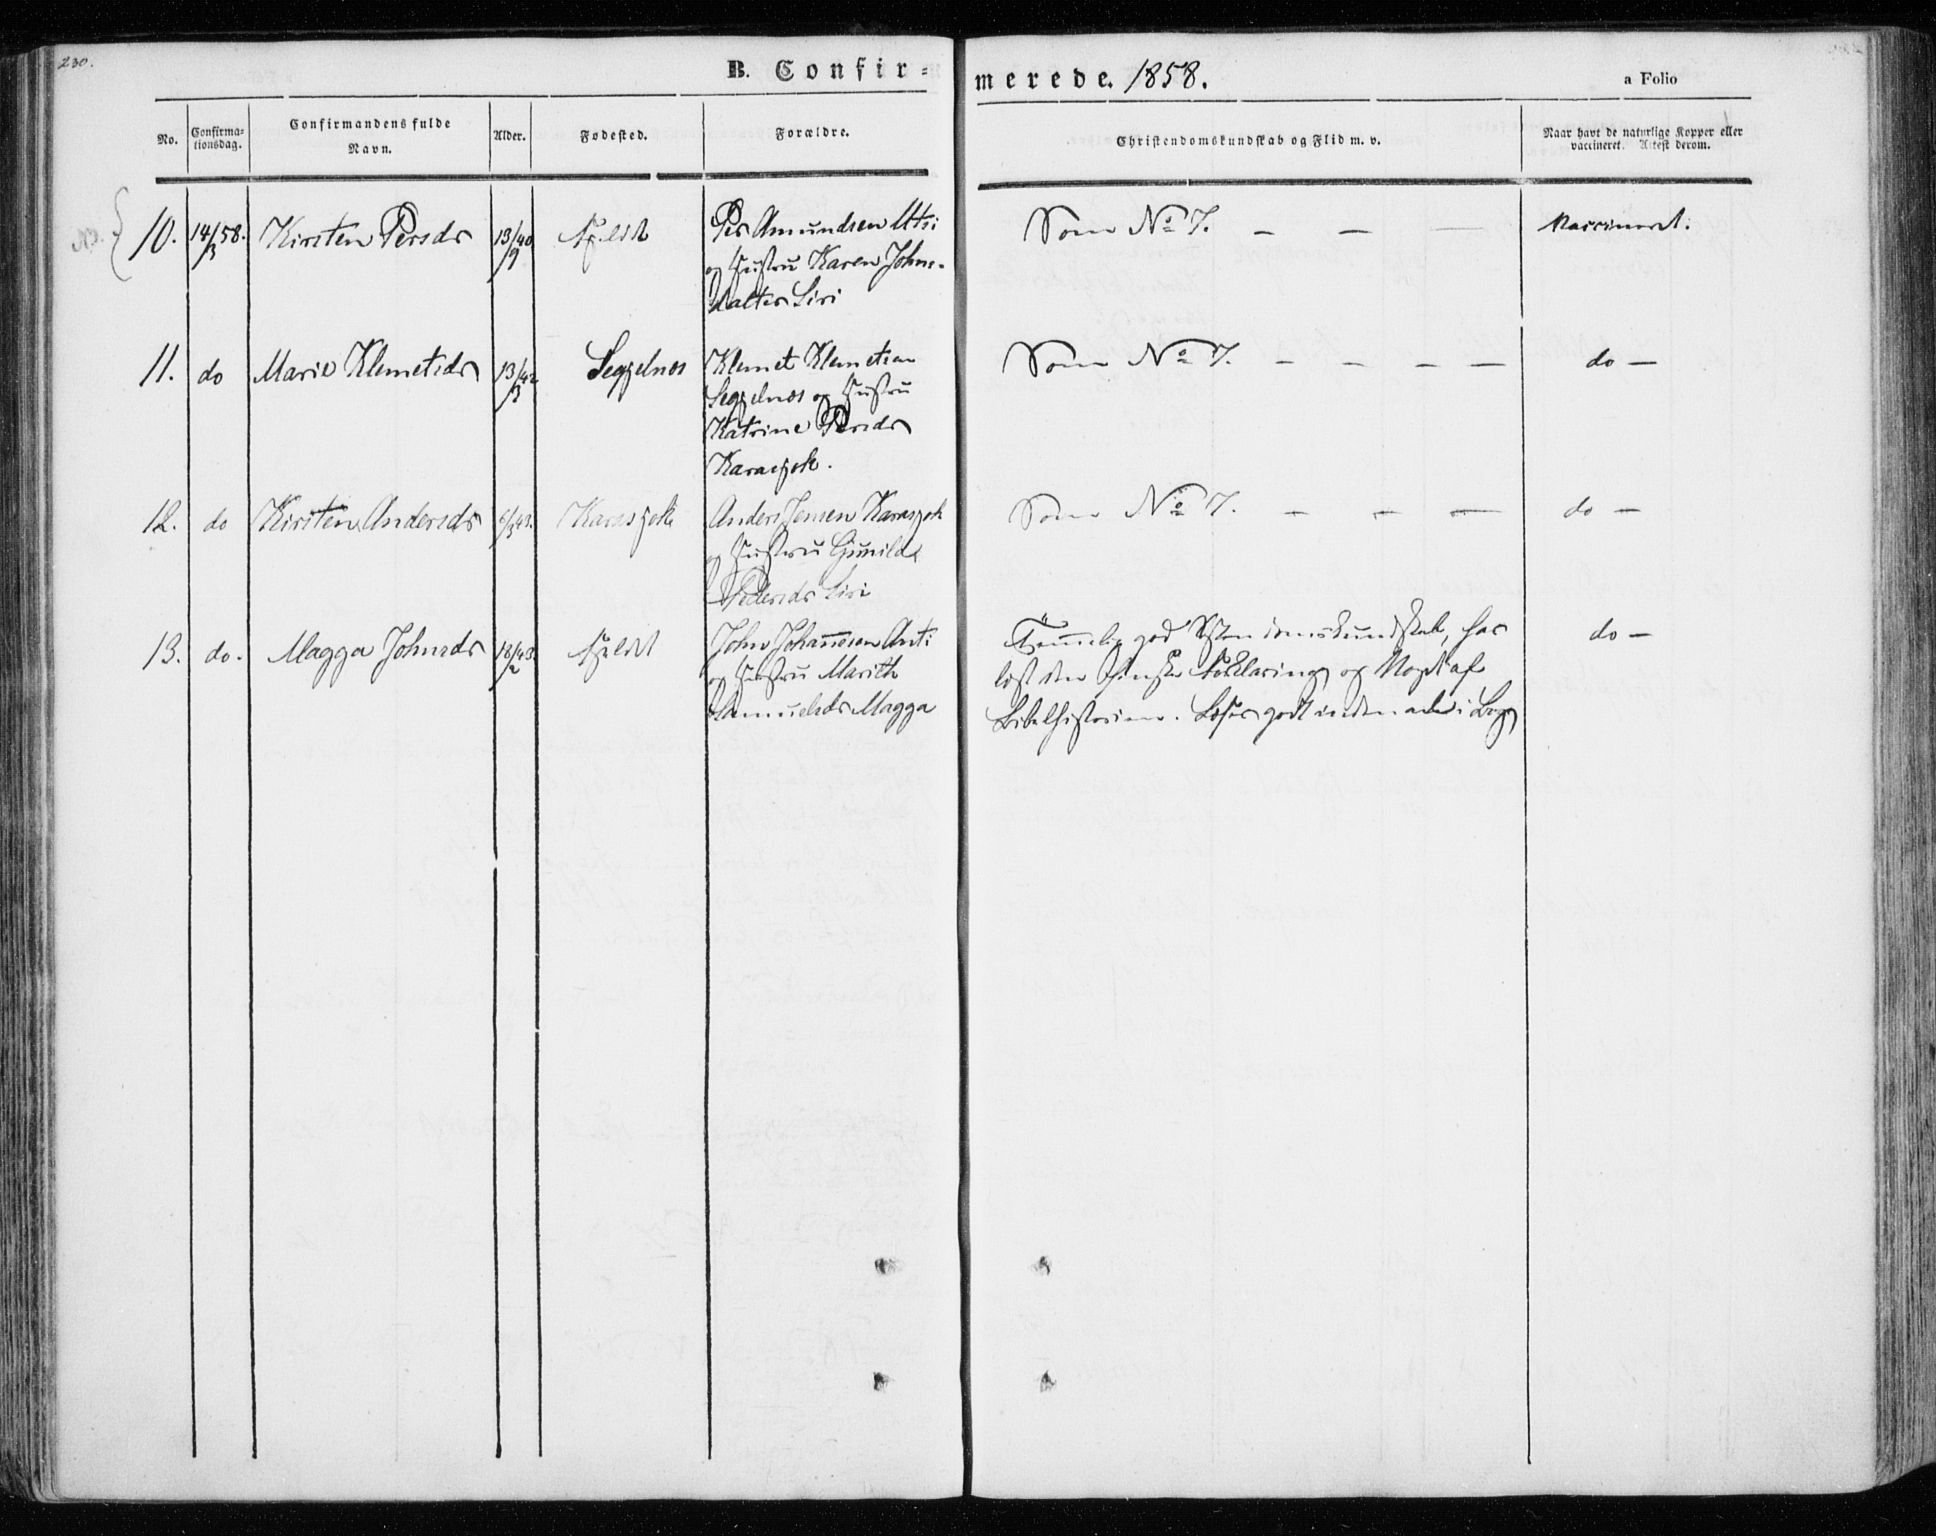 230.
B. Confir-
merede. 1858.
a Folio
No.
Confirma-
tionsdag.
Confirmandens fulde
Navn.
Alder.
Fødested.
Forældre.
Christendomskundskab og Flid m. v.
Naar havt de naturlige Kopper eller
vaccineret. Attest derom.
10. 14/3 58. Kirsten Persdr 13/9 40 Fjeldet Per Amundsen Utsi
og Hustru Karen Johns-
datter Siri
Som No 7. - - - Vaccineret.
11. do Marie Klemetsdr 13/3 42 Segelnes Klemet Klemetsen
Segelnes og Hustru
Katrine Persdr
Karasjok.
Som No 7. - - - - do -
12. do Kirsten Andersdr 6/3 43. Karasjok Anders Jensen Karasjok
og Hustru Gunild
Pedersdr Siri
Som No 7. - - - do -
13. do. Magga Johnsdr 18/2 43. Fjeldet John Johannesen Anti
og Hustru Marith
Samuelsdr Magga
Temmelig god Xstendomskundskab, har
læst den finske Forklaring og Noget af
Bibelhistorien. Læser godt indenad i Bog
do -